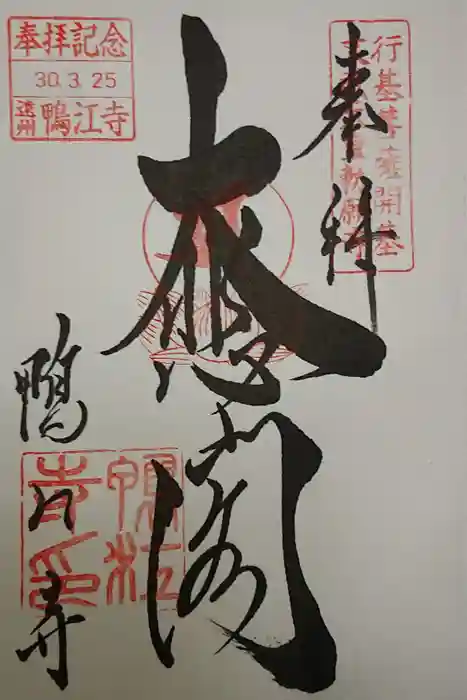 奉拝
行基菩薩開基
大悲閣
鴨江寺
奉拝記念
30.3.25
遠州 鴨江寺
鴨江
寺印